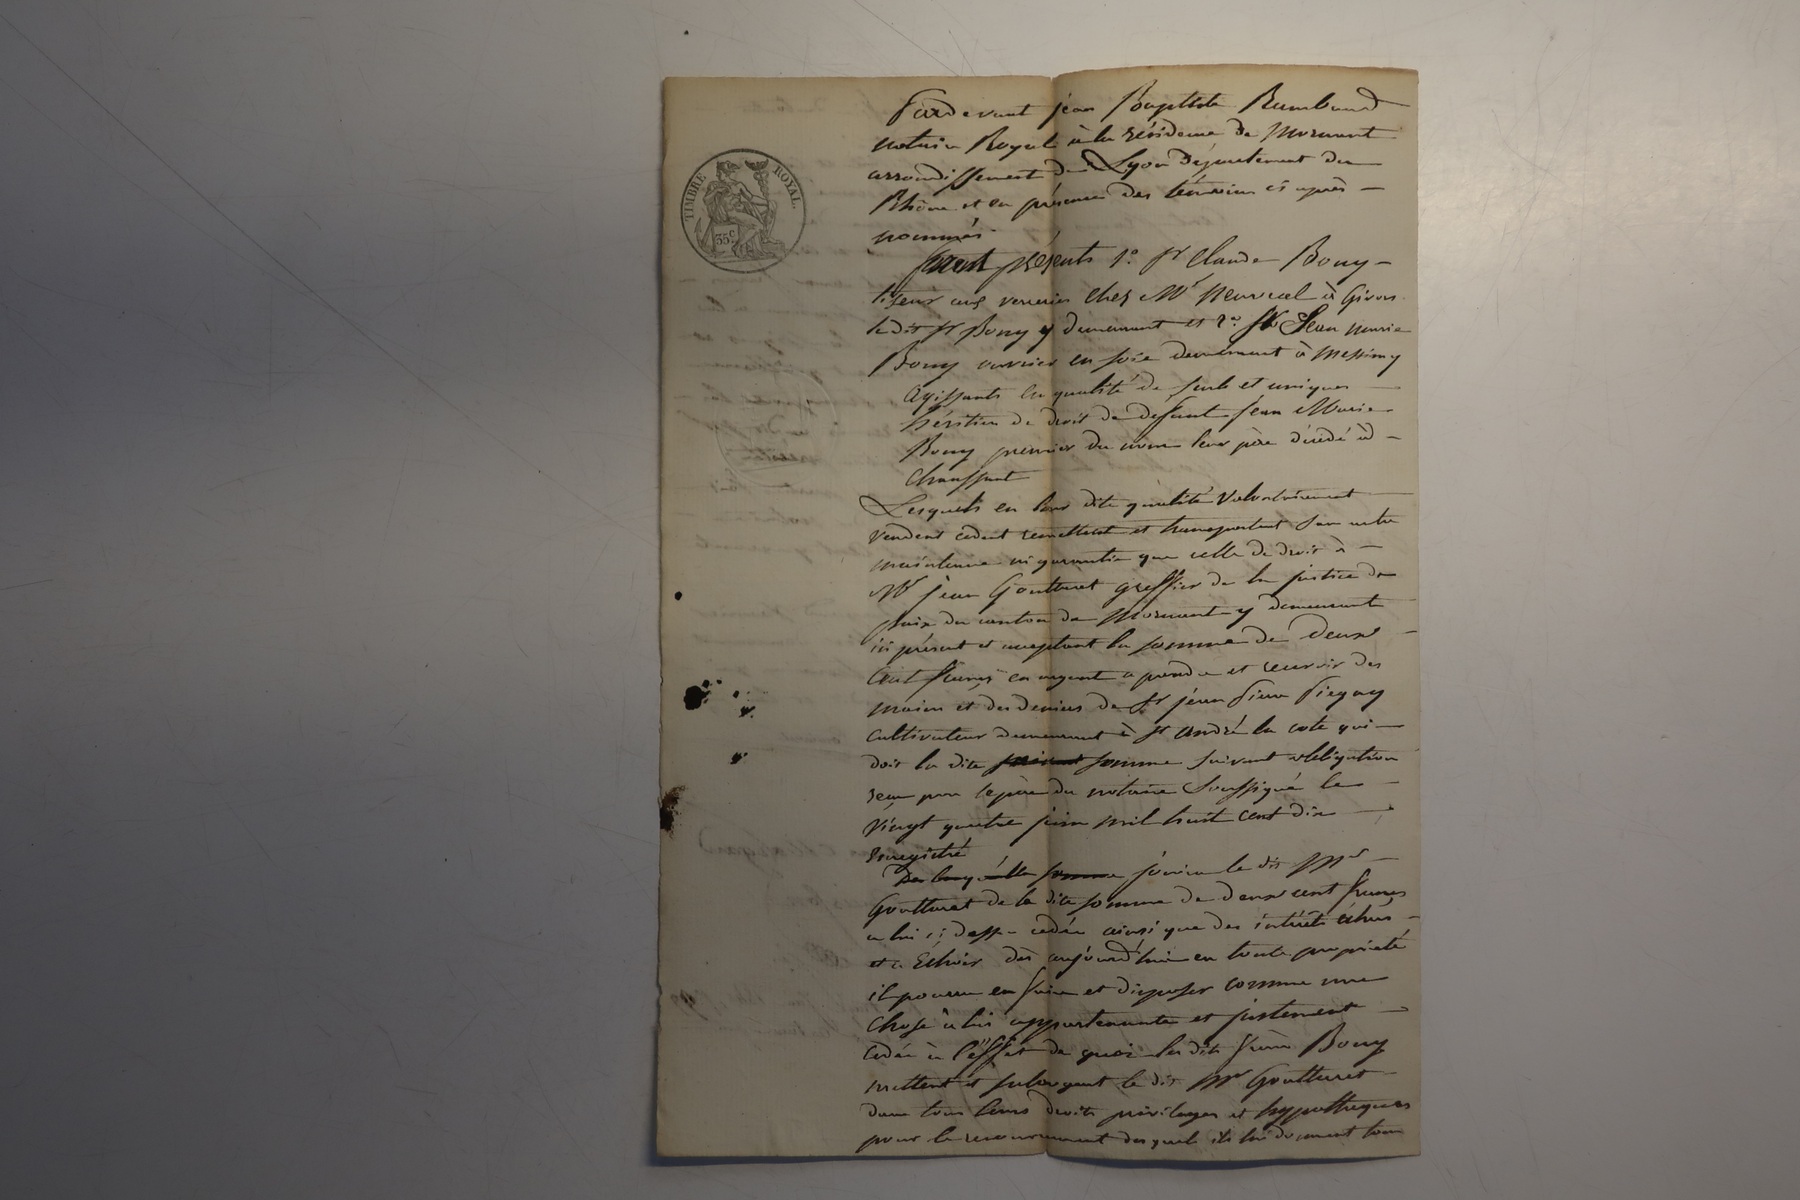 TIMBRE ROYAL.
35 c
Pardevant jean Baptiste Rambaud
notaire Royal à la résidence de Mornant
arrondissement de Lyon Département du
Rhône et en présence des témoins ci après
nommés
furent présents 1.° sr Claude Bony
tiseur aux verreries chez Mr Neuvecel à Givors
le dit sr Bony y demeurant et 2.° sr Jean marie
Bony ouvrier en soie demeurant à Messimy
agissants en qualité de seuls et uniques
héritiers de droit de deffunt Jean Marie
Bony premier du nom leur père décédé à
Chaussant
Lesquels en leur dite qualité volontairement
vendent cedent remettent et transportent sans autre
maintenue ni garantie que celle de droit à
Mr jean Goutturet greffier de la justice de
paix du canton de Mornant y demeurant
ici présent et acceptant la somme de deux
Cent francs en argent a prendre et recevoir des
mains et des deniers de sr jean Pierre Piegay
Cultivateur demeurant à st andré la cote qui
doit la dite somme suivant obligation
reçu par le père du notaire Soussigné le
vingt quatre juin mil huit cent dix
Enregistré
De laquelle somme jouira le dit Mr
Goutturet de la dite somme de deux cent francs
a lui ci dessus cedée ainsi que des intérêts échus
et a Echoir dès aujourd'hui en toute propriété
il pourra en faire et disposer comme une
chose à lui appartenante et justement
cedée à l'effet de quoi les dits frères Bony
mettent et subrogent le dit Mr Goutturet
dans tous leurs droits privileges et hypotheques
pour le recouvrement desquels ils lui donnent tous